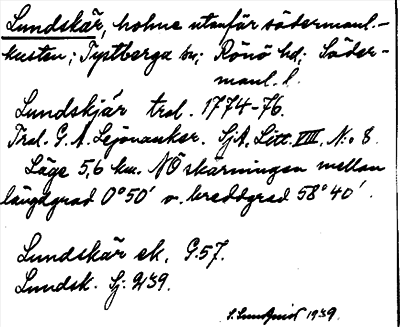 Lundskär, holme utanför södermanl.-
kusten; Tystberga sn; Rönö hd; Söder-
manl. l.
Lundskjär trol. 1774-76.
Trol. G. A. Lejonancker. SjA. Litt. VIII, N:o 8.
Läge 5,6 km. NÖ skärningen mellan
längdgrad 0°50′ o. breddgrad 58°40′.
Lundskär ek. G.57.
Lundsk. Sj: 239.
S. Lundqvist 1939.